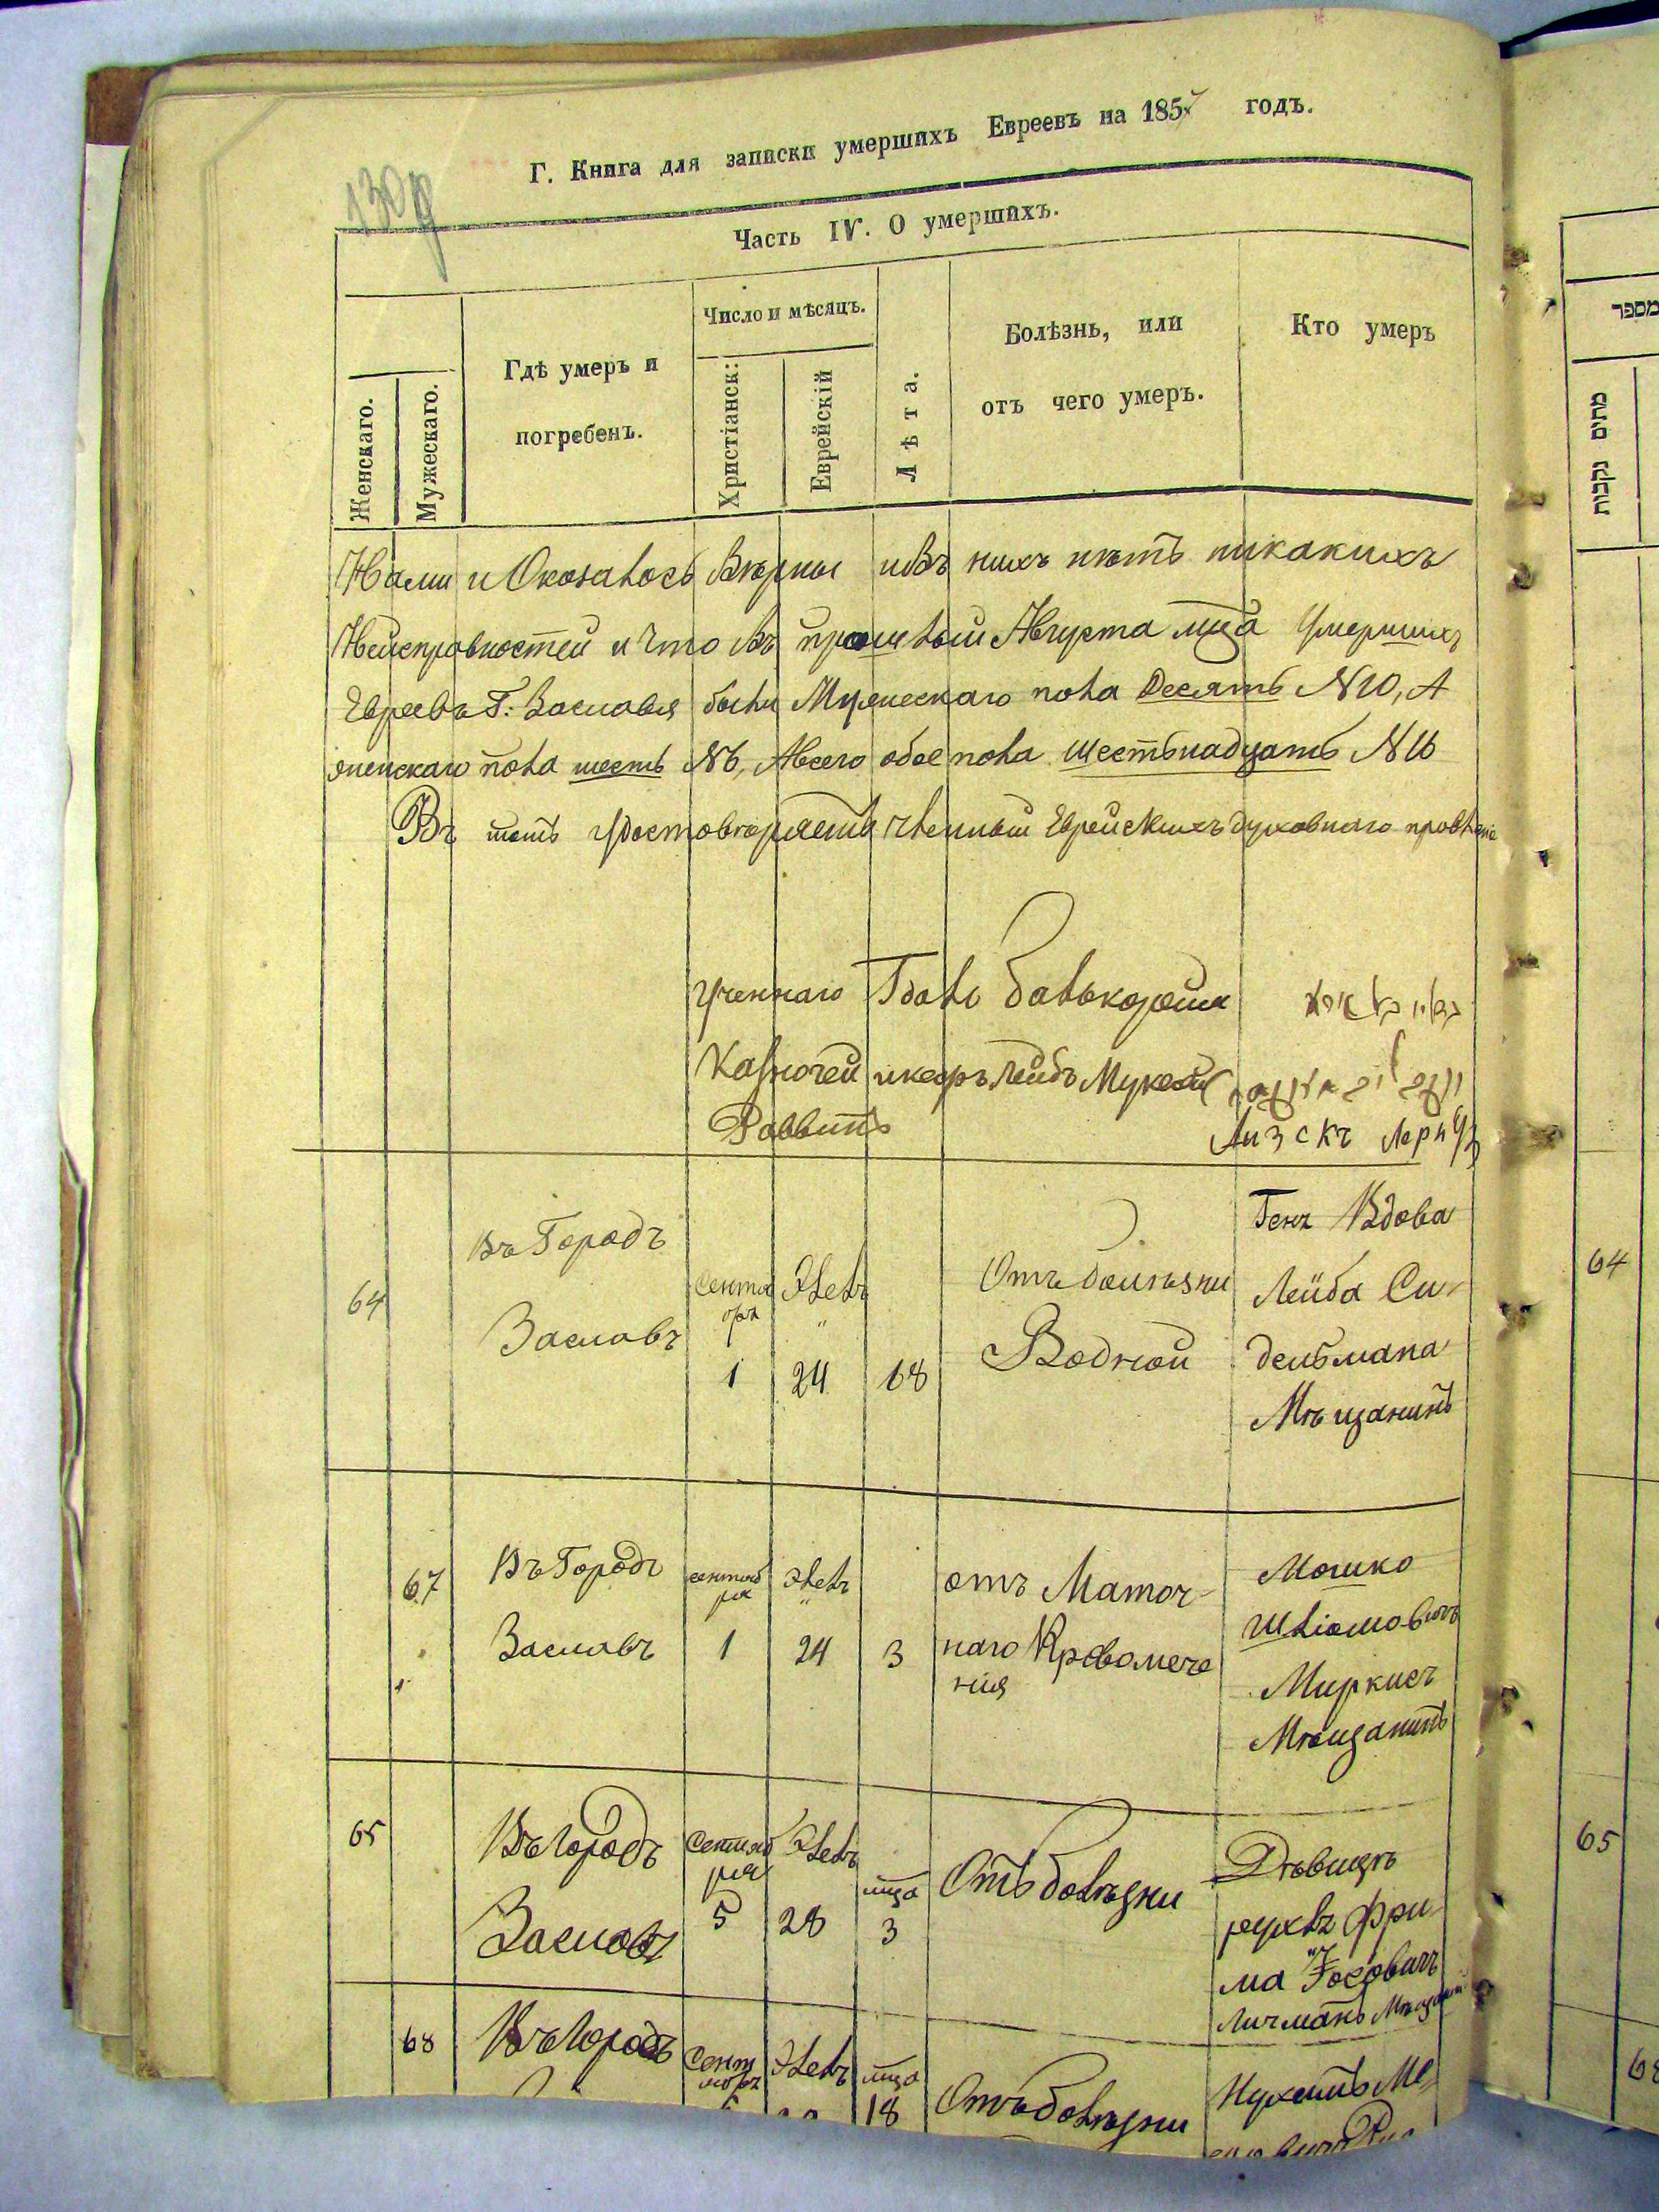 130
Г. Книга для записки умершихъ Евреевъ на 1857 годъ.
Часть IV. О умершихъ.
Женскаго.
Мужескаго.
Гдѣ умеръ и
погребенъ.
Число и мѣсяцъ.
Христіанск:
Еврейскій
Лѣта.
Болѣзнь, или
отъ чего умеръ.
Кто умеръ
Нами и Оказалось Вѣрны и Въ нихъ нѣтъ никакихъ
Неисправностей и Что Въ прошлый Августа мца Умершихъ
Евреевъ Г: Заславля были Мужескаго пола Десять N10, А
женскаго пола шесть N6, Авсего обое пола шестьнадцать N16
Въ томъ удостовѣряетъ Члены Еврейскихъ духовнаго правленія
Ученнаго
Казночей Лейбъ
Раввинъ
64
Въ Городъ
Заславъ
Сентя
бря
1
Элель
"
24
68
Отъ болѣзни
Водной
Вдова
Лейба Си-
дельмана
Мѣщанинъ
67
Въ Городъ
Заславъ
сентяб
ря
1
Элелъ
"
24
3
отъ Маточ-
наго Кровотече
нія
Мошко
Шліомовичъ
Миркисъ
Мѣщанинъ
65
Въ Городъ
Заславъ
Сентяб
ря
5
Элелъ
28
мца
3
Отъ болѣзни
Дѣвица
рухлъ Фри-
ма Іосовичъ
Личманъ Мѣщанинъ
68
Въ Городъ
Сент
ябръ
Элелъ
мца
18
Отъ болѣзни
מספר
מתים נקבות
64
65
68